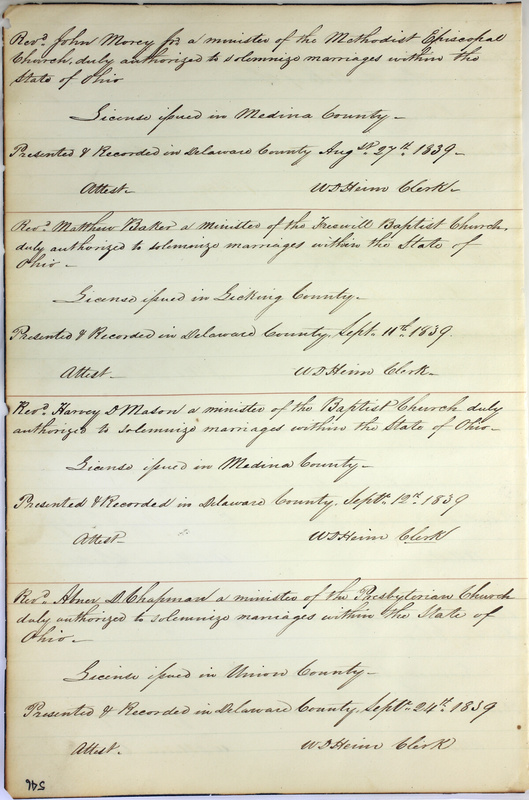 Revd. John Morey Jr. a minister of the Methodist Episcopal
Church, duly authorized to solemnize marriages within the
State of Ohio
License issued in Medina County -
Presented & Recorded in Delaware County Augst. 27th. 1839 -
Attest - W D Heim Clerk -
Revd. Matthew Baker a minister of the Freewill Baptist Church,
duly authorized to solemnize marriages within the State of
Ohio -
License issued in Licking County -
Presented & Recorded in Delaware County, Sept. 11th. 1839.
Attest - W D Heim Clerk -
Revd. Harvey D Mason a minister of the Baptist Church duly
authorized to solemnize marriages within the State of Ohio -
License issued in Medina County -
Presented & Recorded in Delaware County, Septr. 12th. 1839
Attest - W D Heim Clerk
Revd. Abner D. Chapman a minister of the Presbyterian Church
duly authorized to solemnize marriages within the State of
Ohio. -
License issued in Union County -
Presented & Recorded in Delaware County, Septr. 24th. 1839
Attest. - W D Heim Clerk
546